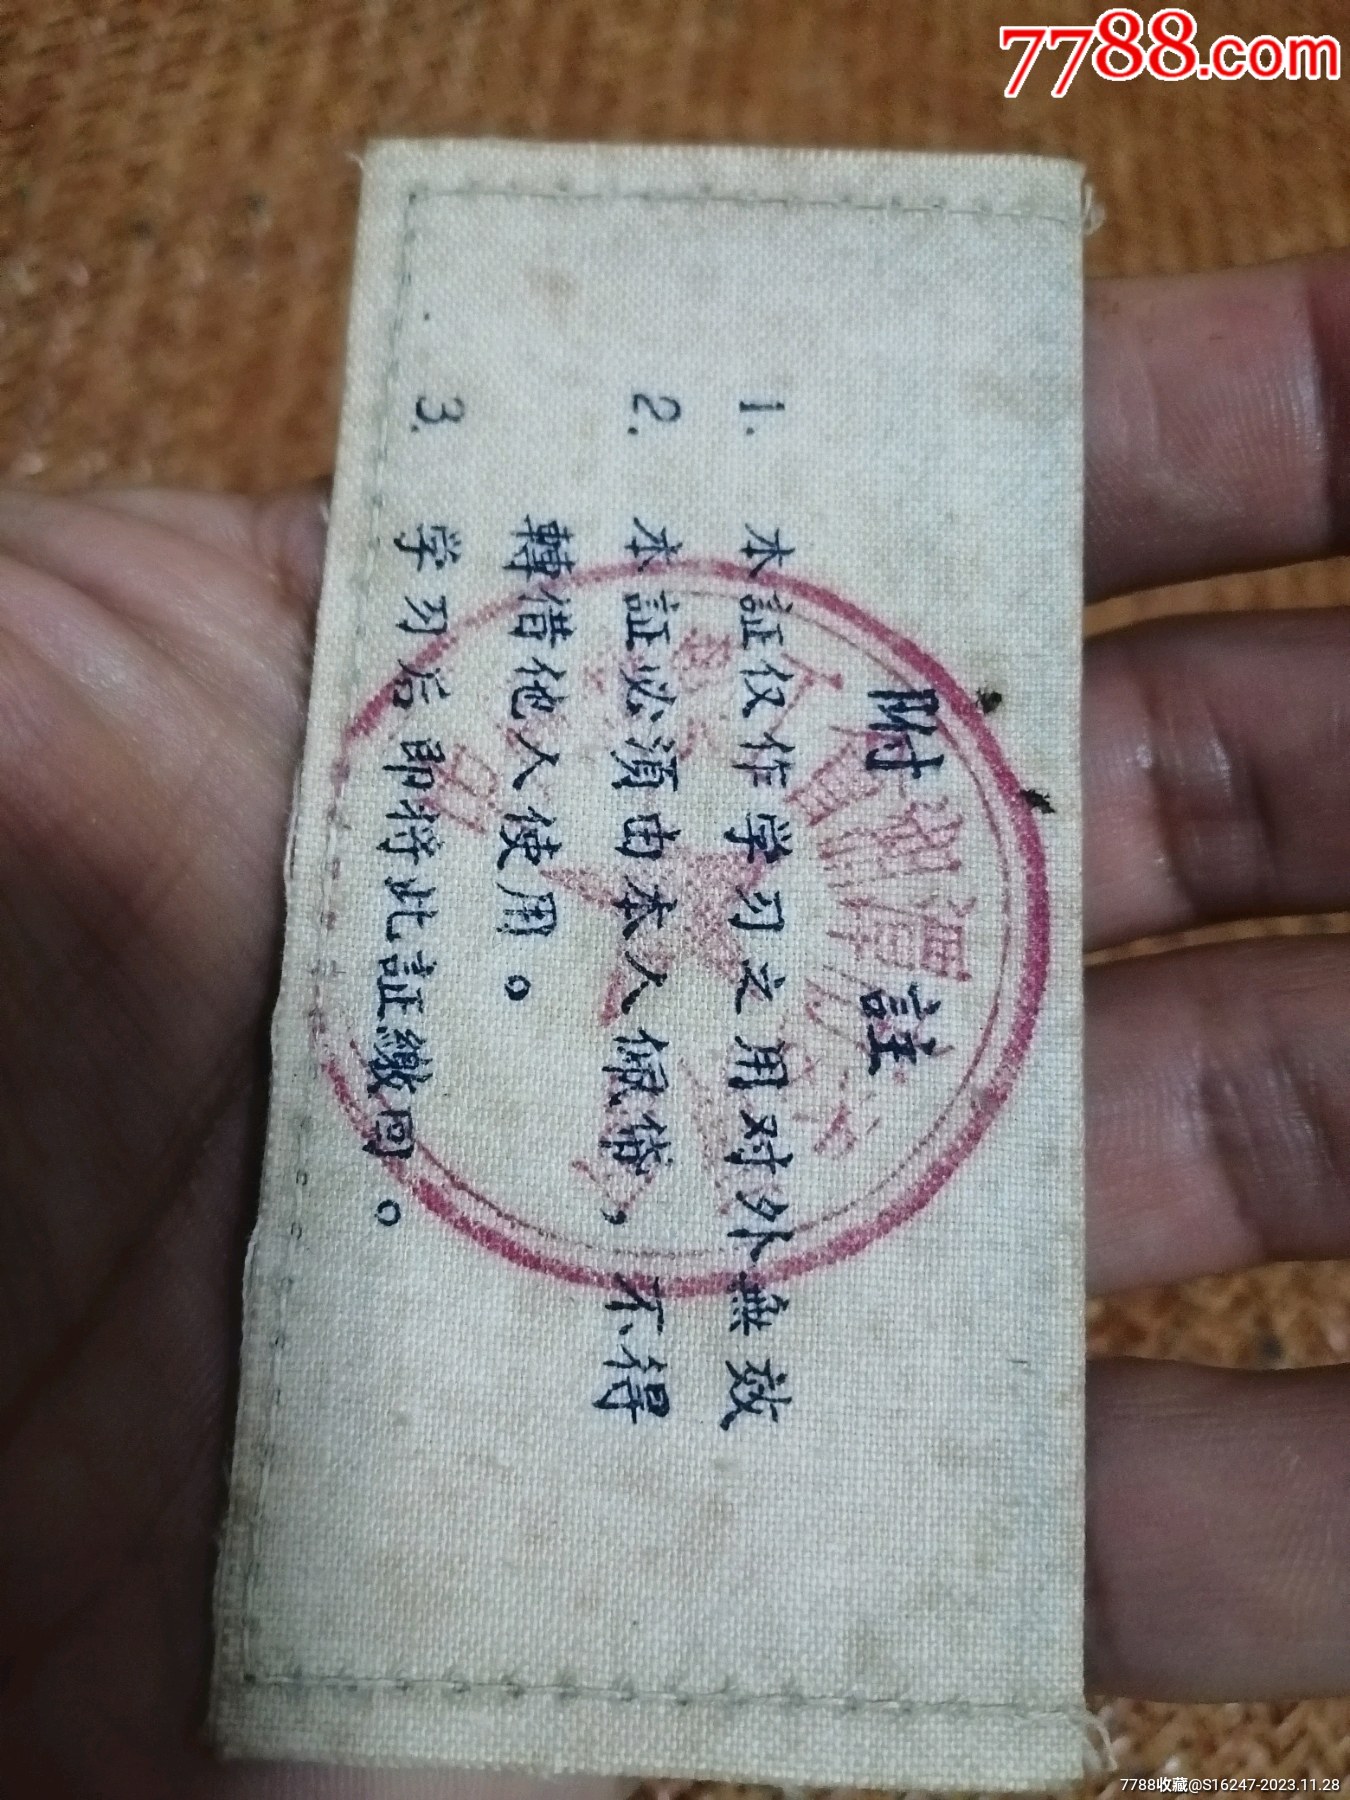 7788.com
附註
1. 本証仅作学习之用对外無效
2. 本証必須由本人佩俻，不得
轉借他人使用。
3. 学习后即将此証繳回。
7788收藏@S16247-2023.11.28